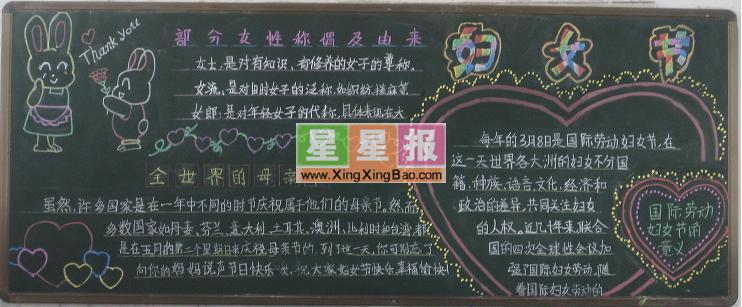 Thank you
部分女性称谓及由来
女士,是对有知识、有修养的女子的尊称,
女流,是对旧时女子的泛称,如织纺、搓麻等
女郎:是对年轻女子的代称,具体表现在大
星星报
www.XingXingBao.com
全世界的母亲
虽然,许多国家是在一年中不同的时节庆祝属于他们的母亲节,然而
多数国家如丹麦、芬兰、意大利、土耳其、澳洲、比利时和台湾,都
是在五月的第二个星期日来庆祝母亲节的,到了这一天,你可别忘了
向你的妈妈说声节日快乐 祝大家妇女节快乐,幸福愉快!
妇女节
每年的3月8日是国际劳动妇女节,在
这一天世界各大洲的妇女不分国
籍、种族、语言、文化、经济和
政治的差异,共同关注妇女
的人权,近几十年来,联合
国的四次全球性会议加
强了国际妇女劳动,随
着国际妇女劳动的
国际劳动
妇女节的
意义